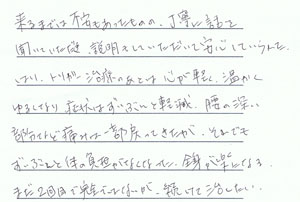 来るまでは不安もあったものの、丁寧に話を
聞いていただき 説明もしていただいて安心していうんた。
はり、トリガー治療のあとは心が軽く、温かく
ゆるしなり 症状はずいぶんと軽減。腰の深い
部分だけど痛みは一部戻ってきたが、それでも
ずいぶんと体の負担がなくなった。全身が楽になる。
まだ2回目で完全ではないが、続けて治したい。